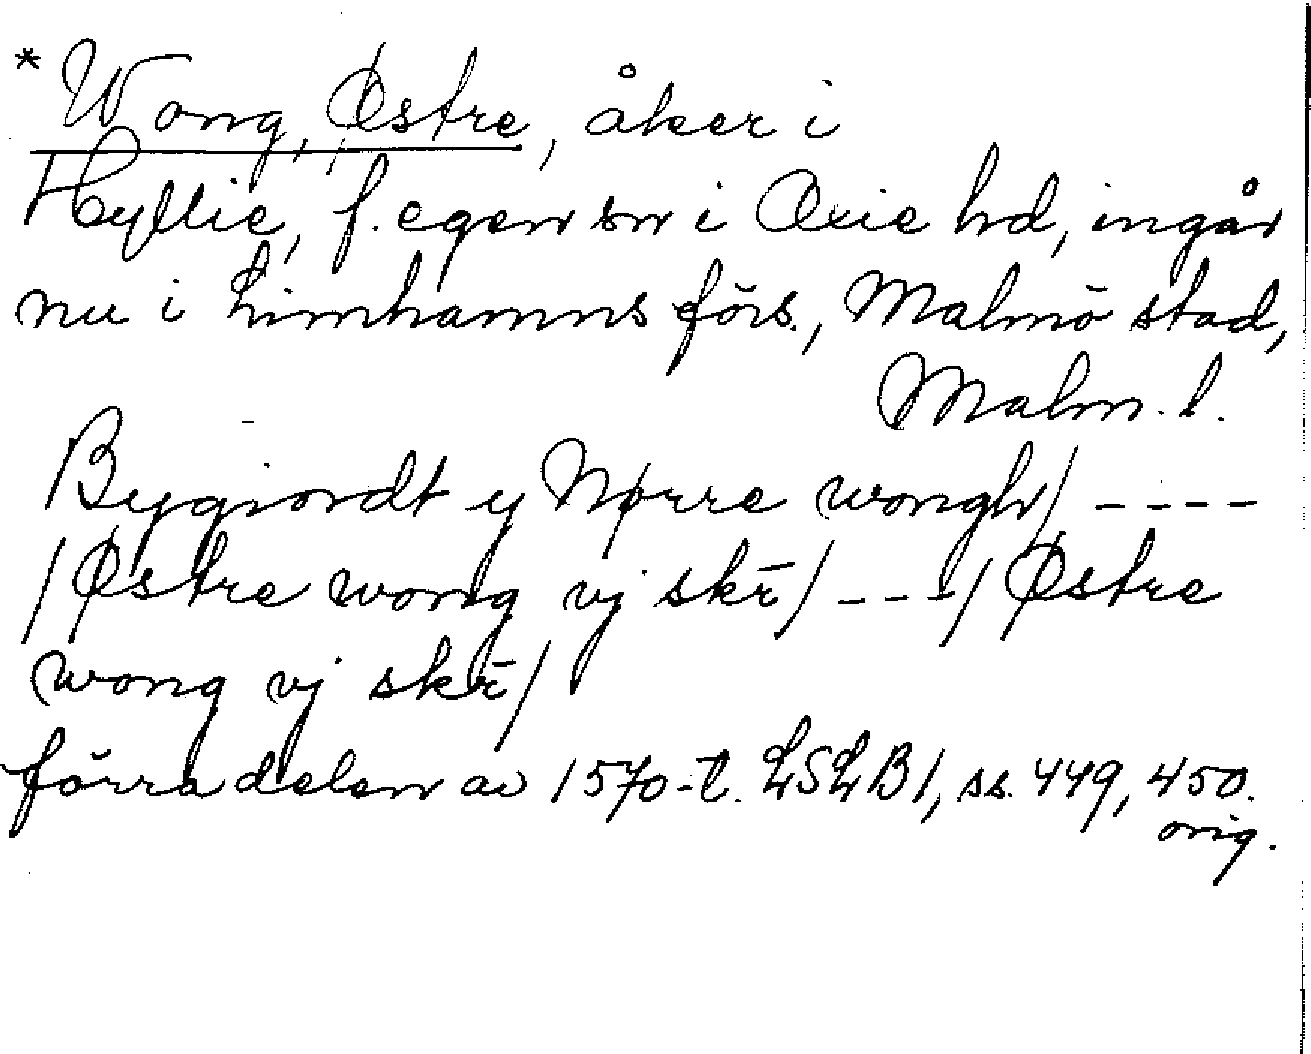 * Wong, Østre, åker i
Hyllie, f. egen sn i Oxie hd, ingår
nu i Limhamns förs., Malmö stad,
Malm. l.
Bygiordt y Nørre wongh/ ----
/Østre wong vj skr̄/ ---/ Østre
wong vj skr̄/
förra delen av 1570-t. LSLB1, ss. 449, 450.
orig.